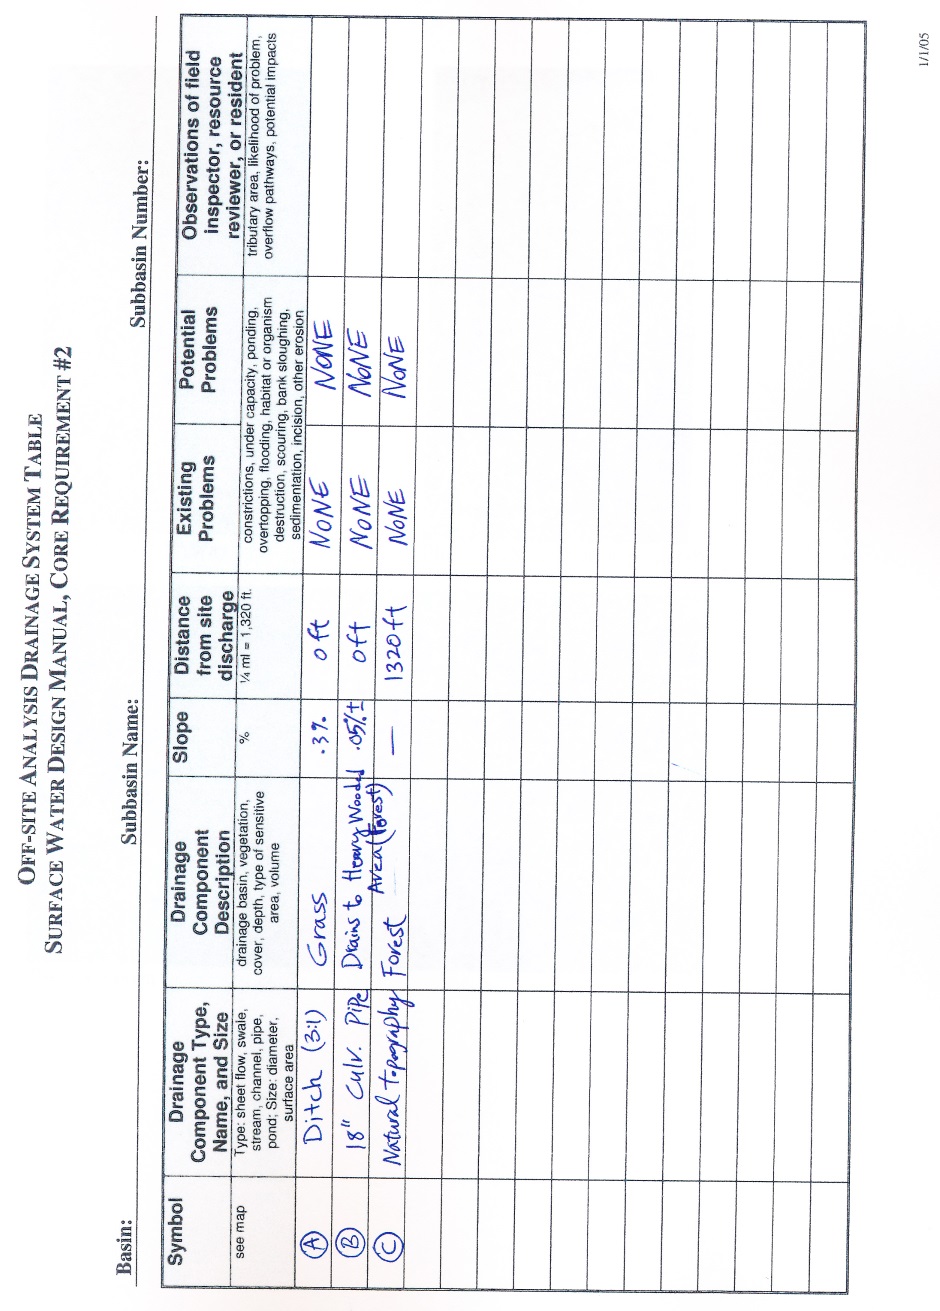 OFF-SITE ANALYSIS DRAINAGE SYSTEM TABLE
SURFACE WATER DESIGN MANUAL, CORE REQUIREMENT #2
Basin: Subbasin Name: Subbasin Number:
Symbol
Drainage
Component Type,
Name, and Size
Drainage
Component
Description
Slope
Distance
from site
discharge
Existing
Problems
Potential
Problems
Observations of field
inspector, resource
reviewer, or resident
see map
Type: sheet flow, swale,
stream, channel, pipe,
pond; Size: diameter,
surface area
drainage basin, vegetation,
cover, depth, type of sensitive
area, volume
%
¼ ml = 1,320 ft.
constrictions, under capacity, ponding,
overtopping, flooding, habitat or organism
destruction, scouring, bank sloughing,
sedimentation, incision, other erosion
tributary area, likelihood of problem,
overflow pathways, potential impacts
A Ditch (3:1) Grass .3% 0 ft NONE NONE
B 18" Culv. Pipe Drains to Heavy Wooded .05%± 0ft NONE NONE
Area (Forest)
C Natural topography Forest — 1320 ft NONE NONE
1/1/05